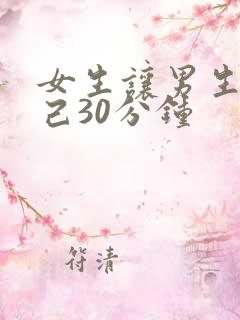 女生讓男生
己30分鐘
符清